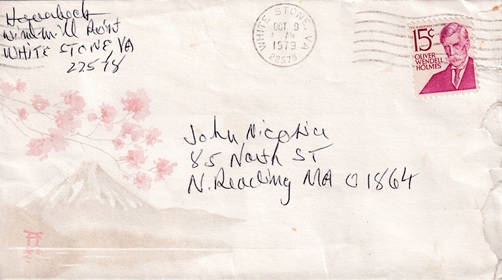 Windmill Point
WHITE STONE, VA
22578
WHITE STONE, VA
OCT 9
1979
22578
15¢
OLIVER
WENDELL
HOLMES
John Nicosia
85 North ST
N. Reading MA 01864